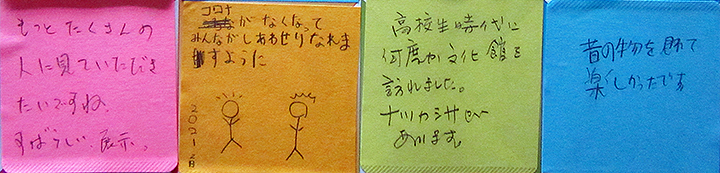 もっとたくさんの
人に見ていただき
たいですね。
すばらしい展示。
コロナ
がなくなって
みんながしあわせになれま
すように
2021 28
高校生時代に
何度か文化館を
訪れました。
ナツカシサで
あります。
昔の物を見れて
楽しかったです